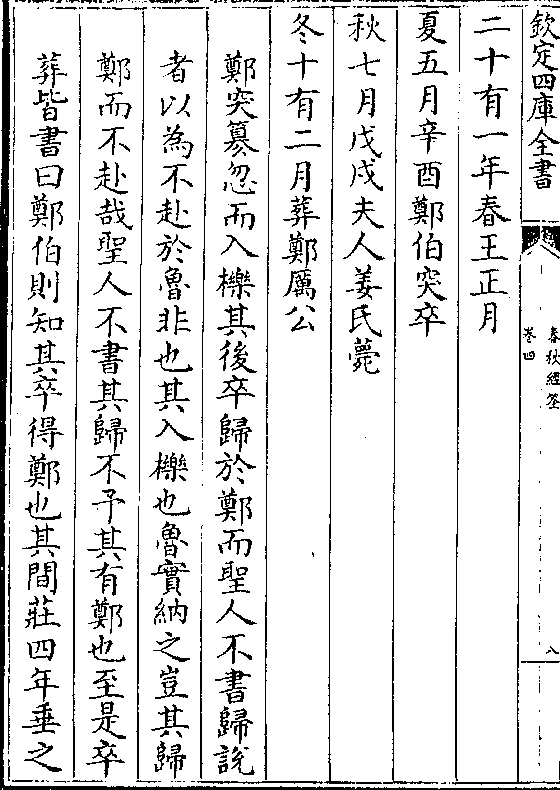 欽定四庫全書
春秋經筌
卷四
八
二十有一年春王正月
夏五月辛酉鄭伯突卒
秋七月戊戌夫人姜氏薨
冬十有二月葬鄭厲公
鄭突簒忽而入櫟其後卒歸於鄭而聖人不書歸説
者以為不赴於魯非也其入櫟也魯實納之豈其歸
鄭而不赴哉聖人不書其歸不予其有鄭也至是卒
葬皆書曰鄭伯則知其卒得鄭也其間莊四年垂之